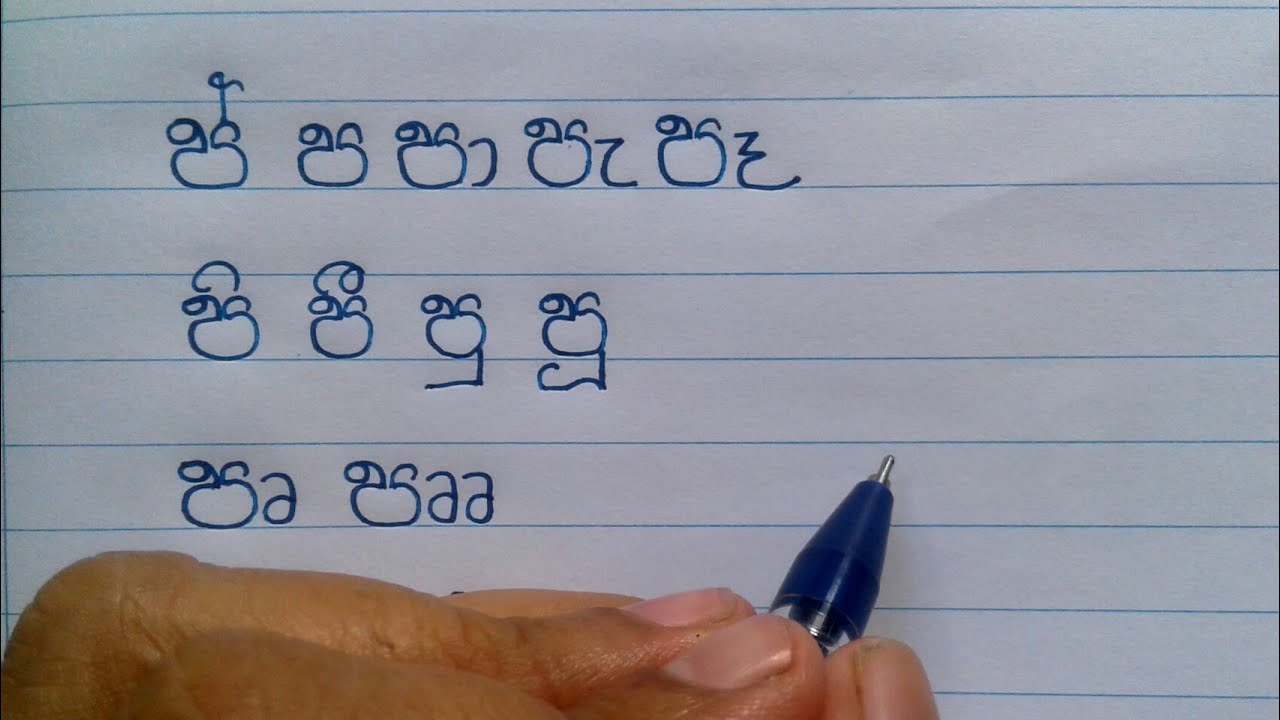 ප් ප පා පැ පෑ
පි පී පු පූ
පෘ පෲ